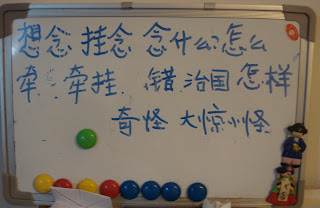 想念 挂念 念什么?怎么
牵 牵挂. 错 治国 怎样
奇怪 大惊小怪